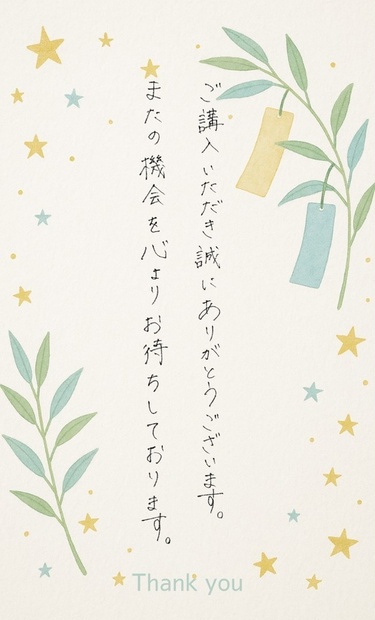 ご講入いただき誠にありがとうございます。
またの機会を心よりお待ちしております。
Thank you